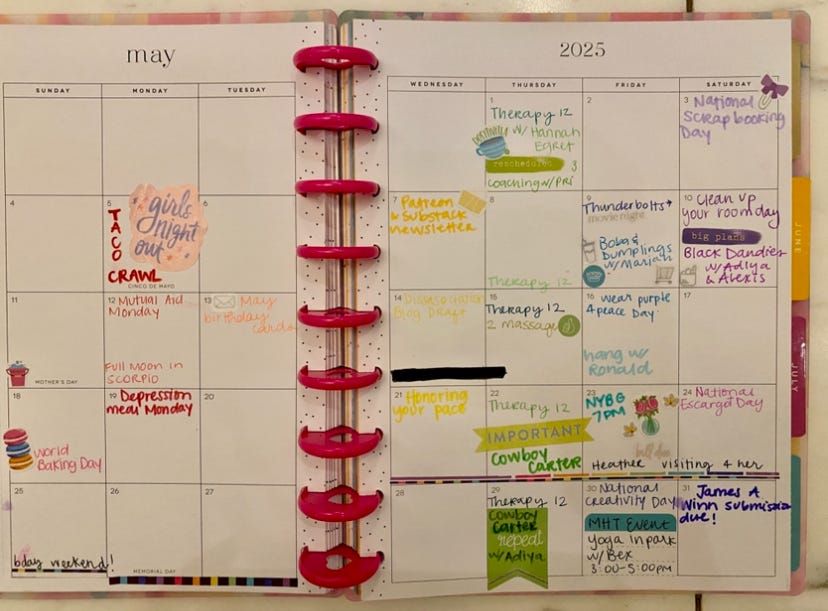 may
2025
SUNDAY MONDAY TUESDAY WEDNESDAY THURSDAY FRIDAY SATURDAY
1
Therapy 12
w/ Hannah
Egret
rescheduled
3
coaching w/ Pri
2
3 National
Scrapbooking
Day
4
5
TACO
girls
night
out
CRAWL
CINCO DE MAYO
6
7 Patreon
& Substack
newsletter
8
Therapy 12
9
Thunderbolts→
movie night
Boba &
Dumplings
w/ Mariah
10 Clean up
your room day
big plans
Black Dandies
w/ Adiya
& Alexis
11
MOTHER'S DAY
12 Mutual Aid
Monday
Full Moon in
SCORPIO
13 May
birthday
cards
14 Dissociation
Blog Draft
15
Therapy 12
2 massage
16 wear purple
4 peace Day
hang w/
Ronald
17
18
World
Baking Day
19 Depression
meal Monday
20
21 Honoring
your pace
22
Therapy 12
IMPORTANT
Cowboy
Carter
23
NYBG
7PM
bill due
24 National
Escargo Day
Heather visiting 4 her
25
bday weekend!
26
MEMORIAL DAY
27
28
29
Therapy 12
Cowboy
Carter
repeat
w/ Adiya
30 National
Creativity Day
MHT Event
yoga in park
w/ Bex
3:00-5:00pm
31 James A
Winn submission
due!
JUNE
JULY